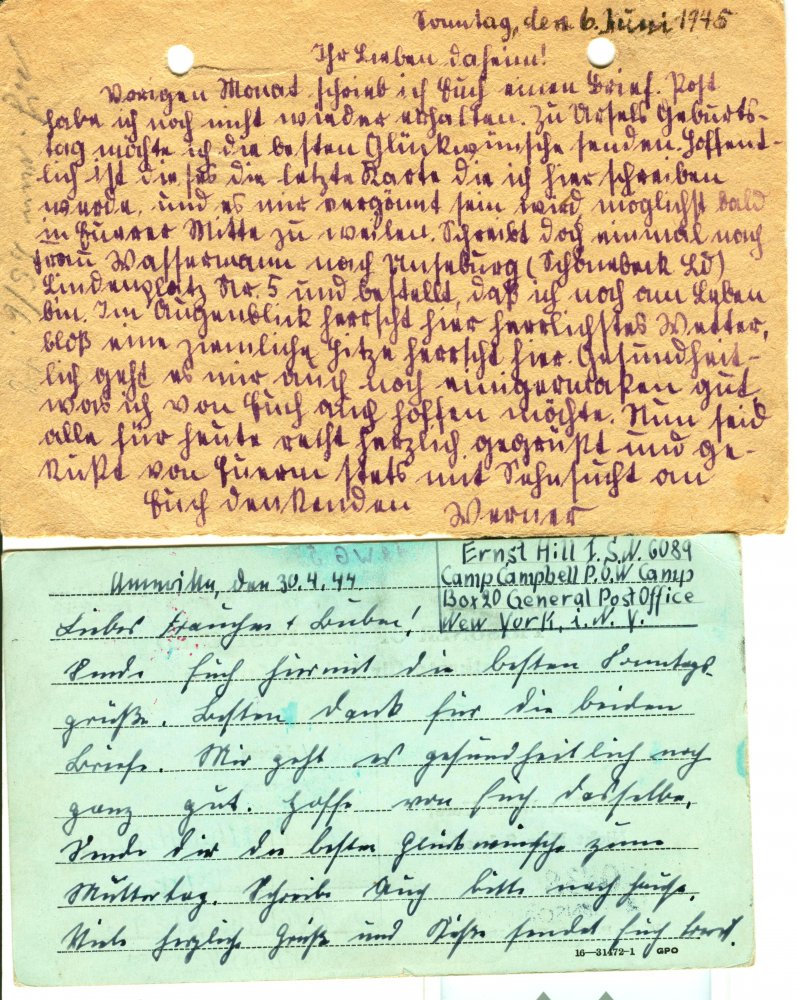 Sonntag, den 6. Juni 1945
Ihr Lieben daheim!
Vorigen Monat schrieb ich Euch einen Brief. Post
habe ich noch nicht wieder erhalten. Zu Ursels Geburts-
tag möchte ich die besten Glückwünsche senden. Hoffent-
lich ist dieses die letzte Karte die ich hier schreiben
werde, und es mir vergönnt sein wird, möglichst bald
in Euerer Mitte zu weilen. Schreibt doch einmal nach
Frau Wassermann nach (Schönebeck
Lindenplatz Nr. 5 und bestellt, daß ich noch am Leben
bin. Im Augenblick herrscht hier herrlichstes Wetter,
bloß eine ziemliche Hitze herrscht hier. Gesundheit-
lich geht es mir auch noch einigermaßen gut
was ich von Euch auch hoffen möchte. Nun seid
alle für heute recht herzlich gegrüßt und ge-
küßt von Euerm stets mit Sehnsucht an
Euch denkenden Werner
Ernst Hill I.S.N. 6089
Camp Campbell P.O.W Camp
Box 20 General Post Office
New York, i. N. Y.
Amerika, den 30.4.44
Liebes Frauchen + Buben!
Sende Euch hiermit die besten Sonntags-
grüße. Besten Dank für die beiden
Briefe. Mir geht es gesundheitlich noch
ganz gut. Hoffe von Euch dasselbe.
Sende dir die besten Glückwünsche zum
Muttertag. Schreibe Auch bitte nach Hause.
Viele herzliche Grüße und Küße sendet Euch Ernst.
16—31472-1 GPO